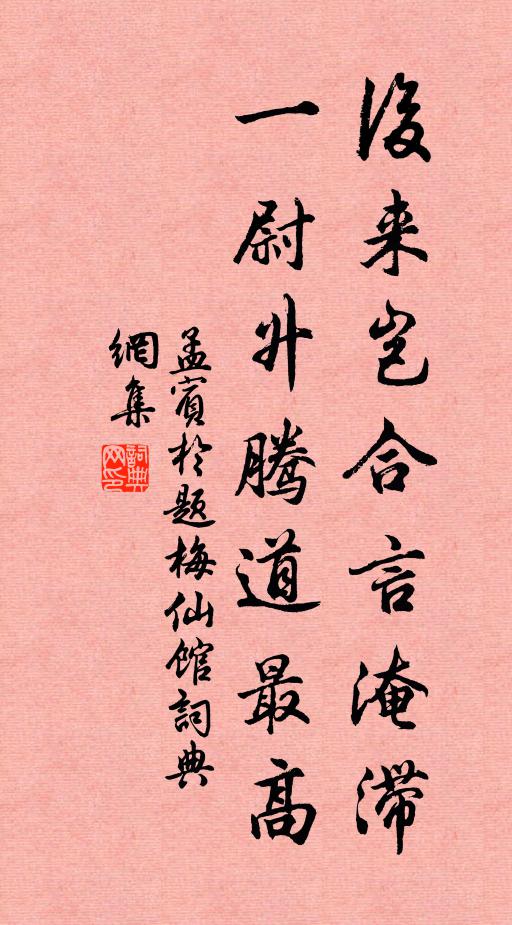 後来岂合言淹滞
一尉升腾道最高
孟賓於題梅仙馆詞典
網集
詞典網印